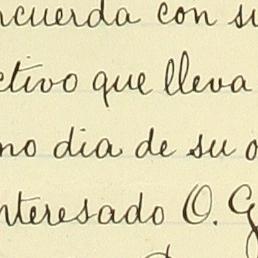 ncuerda con su
ctivo que lleva
mo dia de su o
nteresado O. G